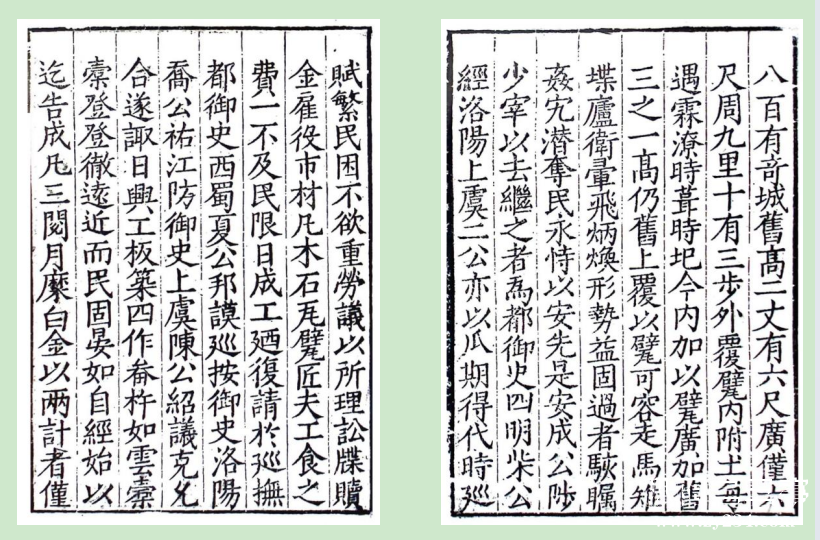 賦繁民困不欲重勞議以所理訟牒贖
金雇役市材凡木石瓦甓匠夫工食之
費一不及民限日成工廼復請於廵撫
都御史西蜀夏公邦謨廵按御史洛陽
喬公祐江防御史上虞陳公紹議克允
合遂諏日興工板築四作畚杵如雲橐
橐登登徹遠近而民固晏如自經始以
迄告成凡三閱月縻白金以兩計者僅
八百有奇城舊髙二丈有六尺廣僅六
尺周九里十有三步外覆甓内附土每
遇霖潦時葺時圮今内加以甓廣加舊
三之一髙仍舊上覆以甓可容走馬雉
堞廬衛翬飛炳煥形勢益固過者駭矚
姦宄潛奪民永恃以安先是安成公陟
少宰以去繼之者為都御史四明柴公
經洛陽上虞二公亦以瓜期得代時廵